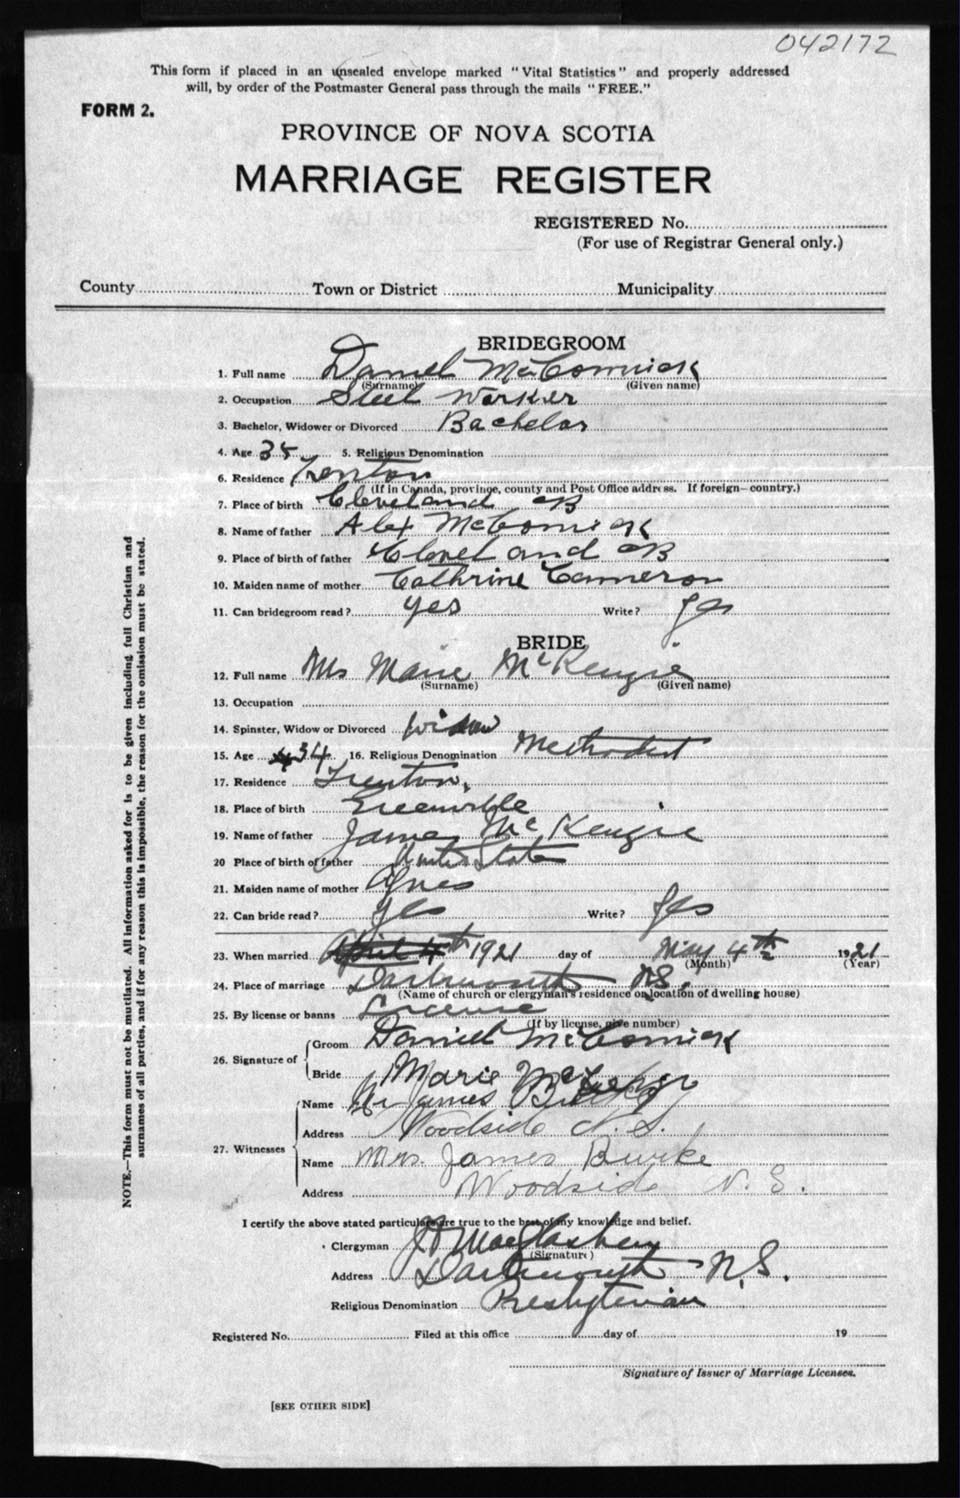 042172
This form if placed in an unsealed envelope marked "Vital Statistics" and properly addressed
will, by order of the Postmaster General pass through the mails "FREE."
FORM 2.
PROVINCE OF NOVA SCOTIA
MARRIAGE REGISTER
REGISTERED No.
(For use of Registrar General only.)
County Town or District Municipality
BRIDEGROOM
1. Full name Daniel McCormick
(Surname) (Given name)
2. Occupation Steel Worker
3. Bachelor, Widower or Divorced Bachelor
4. Age 35 5. Religious Denomination
6. Residence Trenton
(If in Canada, province, county and Post Office address. If foreign—country.)
7. Place of birth Cleveland CB
8. Name of father Alex McCormick
9. Place of birth of father Cleveland CB
10. Maiden name of mother Cathrine Cameron
11. Can bridegroom read? yes Write? yes
BRIDE
12. Full name Mrs Marie McKenzie
(Surname) (Given name)
13. Occupation
14. Spinster, Widow or Divorced Widow
15. Age 34 16. Religious Denomination Methodist
17. Residence Trenton.
18. Place of birth Greenville
19. Name of father James McKenzie
20 Place of birth of father United States
21. Maiden name of mother Agnes
22. Can bride read? yes Write? yes
23. When married April 4th 1921 day of May 4th 1921
(Month) (Year)
24. Place of marriage Dartmouth NS.
(Name of church or clergyman's residence or location of dwelling house)
25. By license or banns License
(If by license, give number)
26. Signature of Groom Daniel McCormick
Bride Marie
27. Witnesses Name Mr James Burke
Address Woodside N.S.
Name Mrs. James Burke
Address Woodside N.S.
I certify the above stated particulars are true to the best of my knowledge and belief.
Clergyman
(Signature)
Address Dartmouth N.S.
Religious Denomination Presbyterian
Registered No. Filed at this office day of 19
Signature of Issuer of Marriage Licenses.
[SEE OTHER SIDE]
NOTE.—This form must not be mutilated. All information asked for is to be given including full Christian and
surnames of all parties, and if for any reason this is impossible, the reason for the omission must be stated.